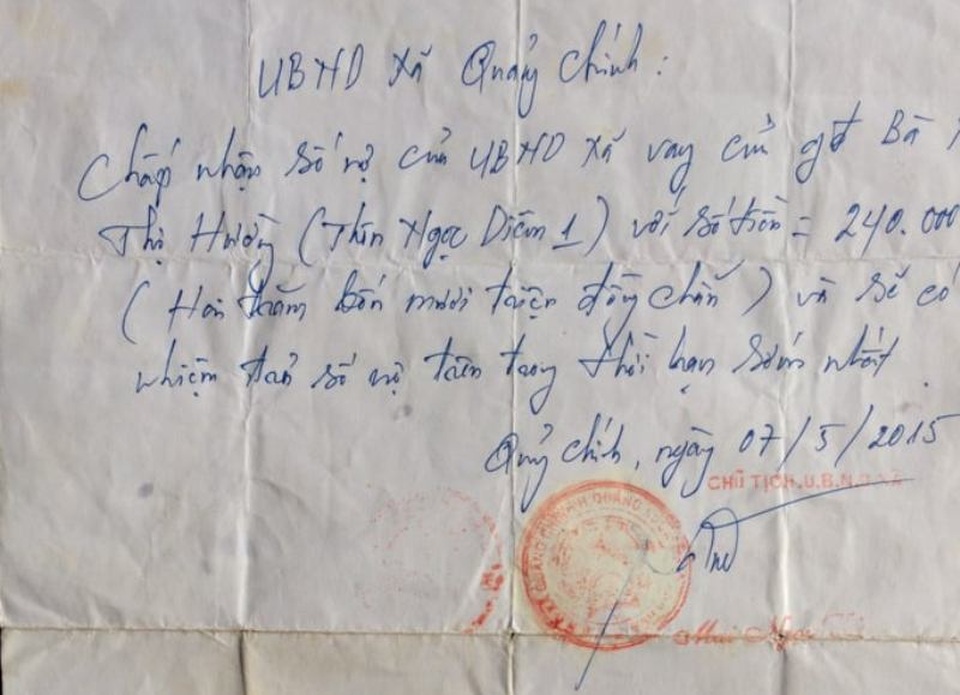 UBND xã Quảng Chính:
Chấp nhận số nợ của UBND xã vay của gđ Bà
Thị Hường (Thìn Ngọc Diêm 1) với số tiền = 240.000
(Hai trăm bốn mươi triệu đồng chẵn) và sẽ có
nhiệm trả số nợ trên trong thời hạn sớm nhất.
Quảng chính, ngày 07/5/2015
CHỦ TỊCH U.B.N.D XÃ